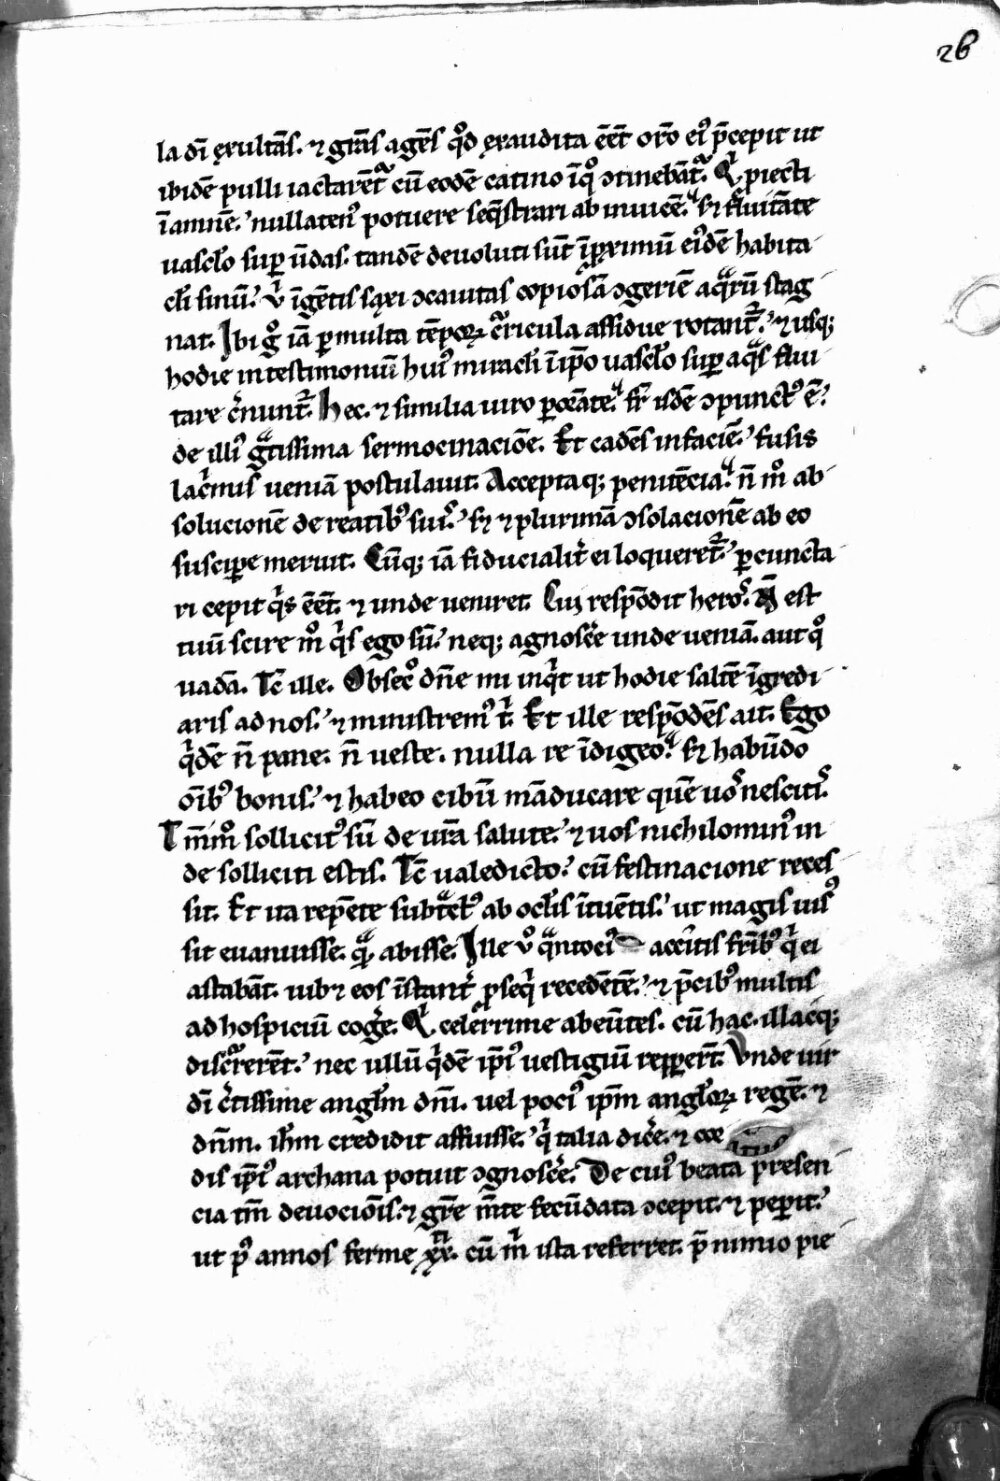 26
la dī exultās. ⁊ grās agēs qd̄ exaudita eēt orō ei᷒ p̄cepit ut
ibidē pulli iactarēt᷑ cū eodē catino īq᷒ ɔtinebāt᷑. Qi piecti
ī amnē. nullaten᷒ potuere seq̄strari ab inuicē. s; ⁊ fluitāte
uascl̄o sup ūdas. tandē deuoluti sūt īproximū ei᷒dē habita
cl̄i sinū. ū īgētis saxi ɔcauitas copiosā ɔgeriē aquarū stag
nat. Ibi g᷒ iā permulta tēpoꝝ cͬricula assidue rotant᷑. ⁊ usq;
hodie in testimoniū hui᷒ miracl̄i īip̄o uascl̄o sup aqᷓs flui
tare cͬnunt᷑. Hec. ⁊ similia uiro ꝑorāte. fr̄ isdē ɔpunct᷒ ē.
de illi᷒ gᷓtissima sermocinaciōe. Et cadēs in faciē. fusis
lacͥmis ueniā postulauit. Acceptaq; penitēcia. n̄ m᷒ ab
solucionē de reatib᷒ suis. s; ⁊ plurimā ɔsolacionē ab eo
suscipe meruit. Cūq; iā fiducialit᷑ ei loqueret᷑. ꝑcuncta
ri cepit qͥs eēt. ⁊ unde ueniret. Cui respōdit heros. Nō est
tuū scire m᷒ qͥs ego sū. neq; agnoscͤe unde ueniā. aut q᷒
uadā. Tc̄ ille. Obsecͦ dn̄e mi inqͥt ut hodie saltē īgredi
aris ad nos. ⁊ ministrem᷒ tͥ. Et ille respōdēs ait. Ego
qͥdē n̄ pane. n̄ ueste. nulla re īdigeo. s; habūdo
oīb᷒ bonis. ⁊ habeo cibū māducare quē uos nescitis.
Tm̄mͦ sollicit᷒ sū de ur̄a salute. ⁊ uos nichilomin᷒ in
de solliciti estis. Tc̄ ualedicto. cū festinacione reces
sit. Et ita repēte subtᷓct᷒ ab ocl̄is ītuētis. ut magis uis᷒
sit euanuisse. qᷓ abisse. Ille ū qᷓntoci᷒ accitis fr̄ib᷒ qͥ ei
astabāt. iub; eos īstant᷑ pseqͥ recedētē. ⁊ p̄cib᷒ multis
ad hospiciū cogͤe. Qi celerrime abeūtes. cū hac. illacq;
discͬrerēt. nec ullū qͥdē ip̄i᷒ uestigiū repperer̄t. Vnde uir
dī cͤtissime angl̄m dn̄i. uel poci᷒ ip̄m angl̄oꝝ regē. ⁊
dn̄m. ih̄m credidit affuisse. qͥ talia dicͤe. ⁊ cor
dis ip̄i᷒ archana potuit ɔgnoscͤe. De cui᷒ beata presen
cia tm̄ deuociōis. ⁊ gr̄e m̄te fecūdata ɔcepit. ⁊ peperit.
ut p᷒ annos ferme xx. cū mͥ ista referret. p̄ nimio pie